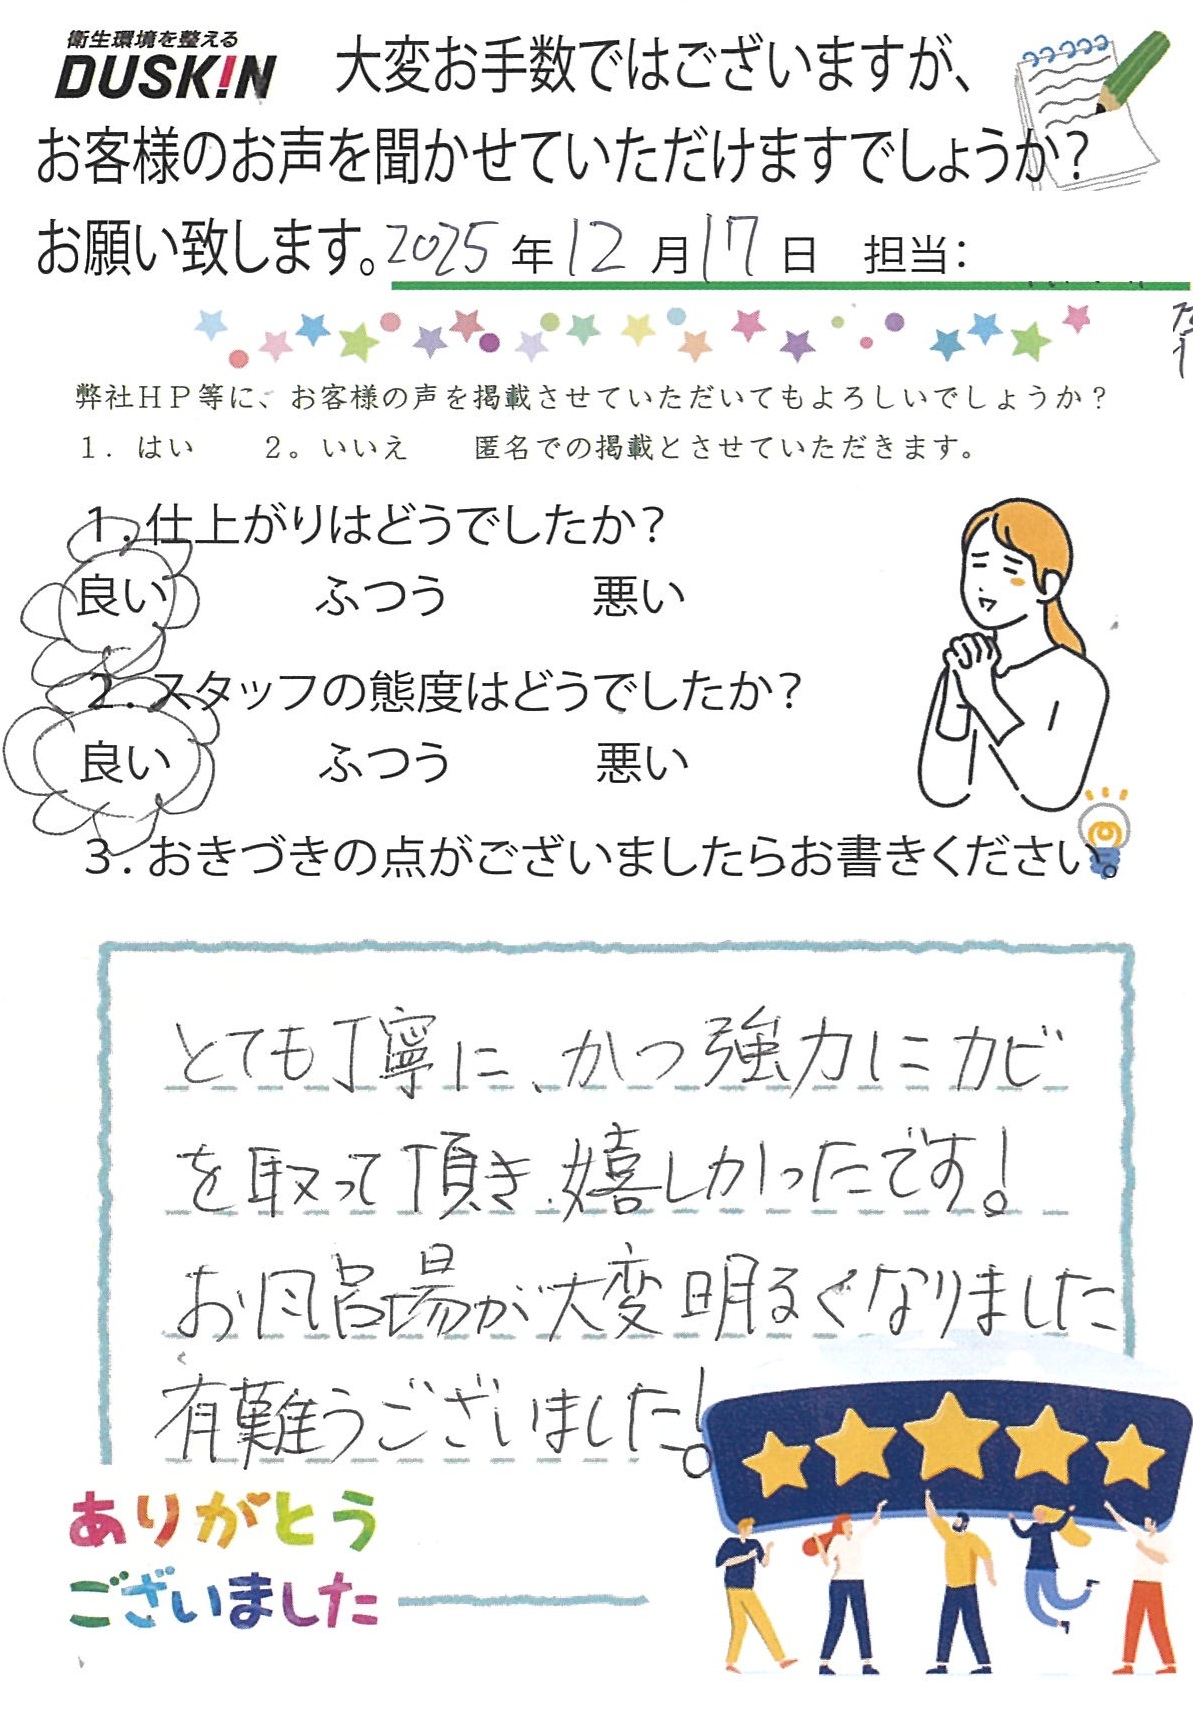 衛生環境を整える
DUSKIN 大変お手数ではございますが、
お客様のお声を聞かせていただけますでしょうか？
お願い致します。2025年12月17日 担当：
弊社ＨＰ等に、お客様の声を掲載させていただいてもよろしいでしょうか？
１．はい ２。いいえ 匿名での掲載とさせていただきます。
１．仕上がりはどうでしたか？
良い ふつう 悪い
２．スタッフの態度はどうでしたか？
良い ふつう 悪い
３．おきづきの点がございましたらお書きください。
とても丁寧に、かつ強力にカビ
を取って頂き、嬉しかったです！
お風呂場が大変明るくなりました
有難うございました！
ありがとう
ございました